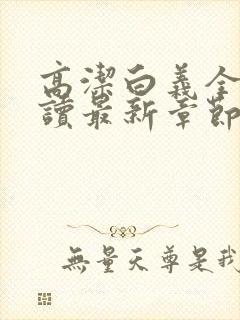 高潔白義全
讀最新章節
無量天尊是我